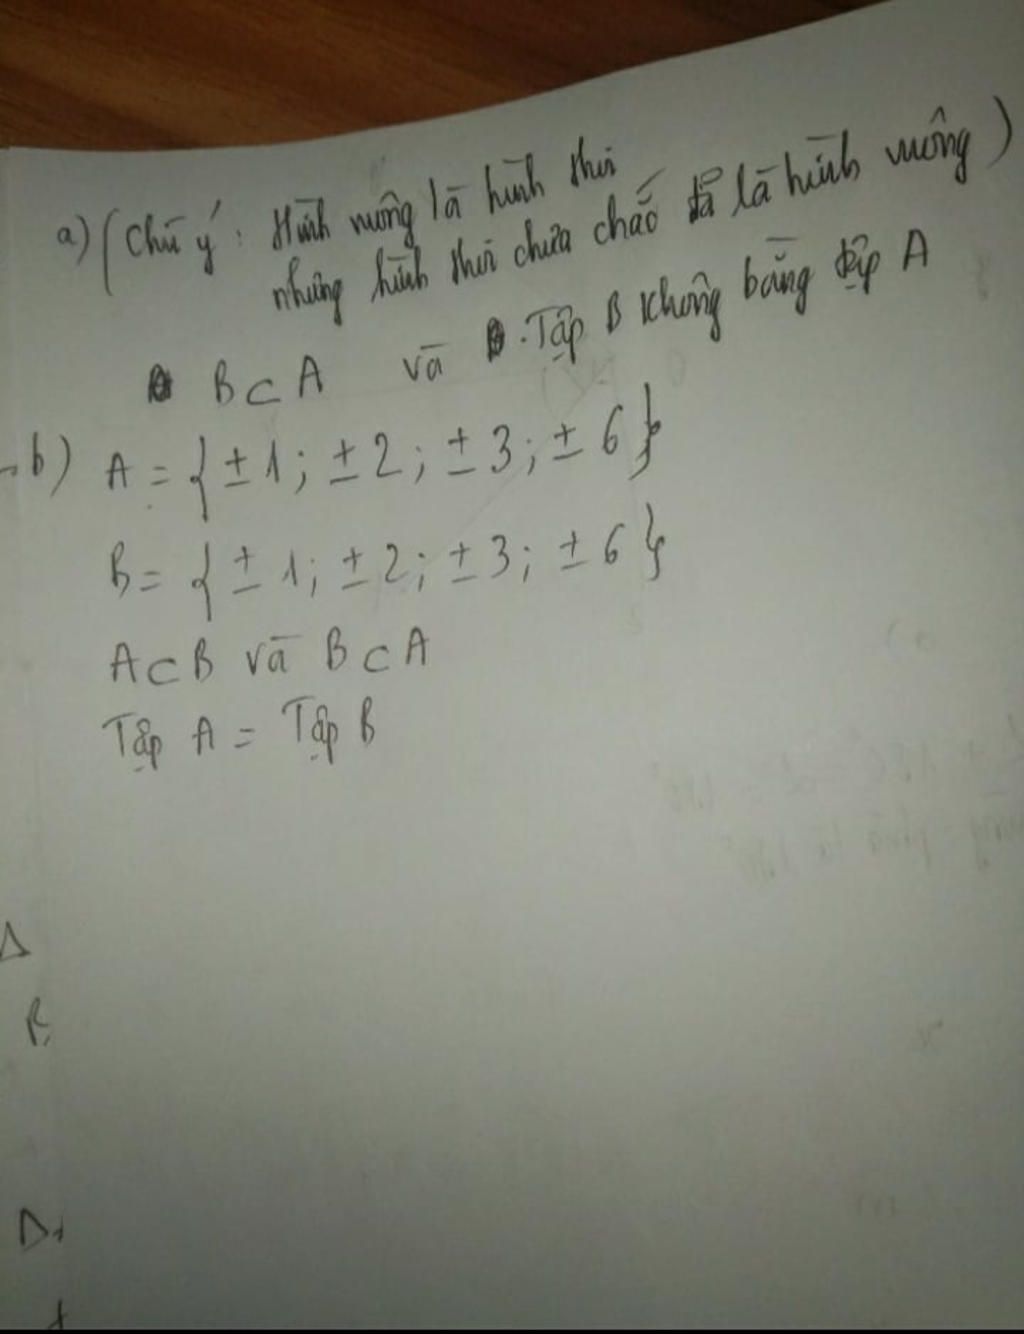 a) (Chú ý: Hình vuông là hình thoi
nhưng hình thoi chưa chắc đã là hình vuông)
B ⊂ A và Tập B không bằng tập A
b) A = { ± 1; ± 2; ± 3; ± 6 }
B = { ± 1; ± 2; ± 3; ± 6 }
A ⊂ B và B ⊂ A
Tập A = Tập B
B